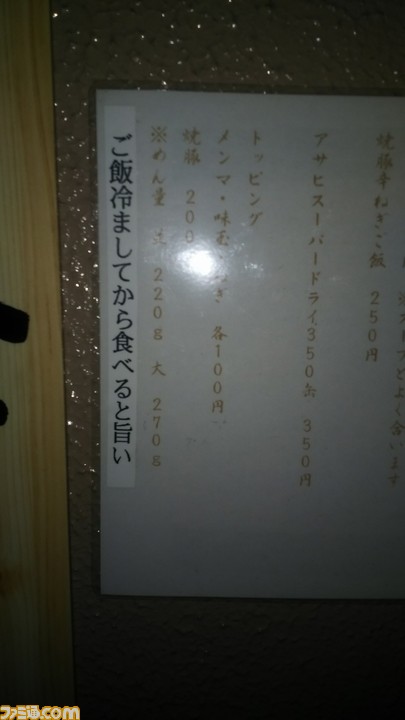 ※スープとよく合います
焼豚辛ねぎご飯 250円
アサヒスーパードライ350缶 350円
トッピング
メンマ・味玉 ねぎ 各100円
焼豚 200
※めん量 220g 大 270g
ご飯冷ましてから食べると旨い
ファミ通.com